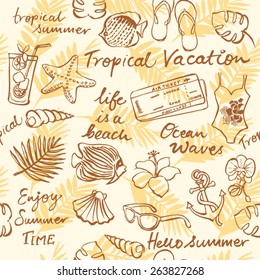 tropical
summer
Tropical Vacation
life
is a
beach
AIR TICKET
Ocean
Waves
pical
Tro
Enjoy
Summer
TIME
Hello summer
shutterstock
IMAGE ID: 263827268
www.shutterstock.com